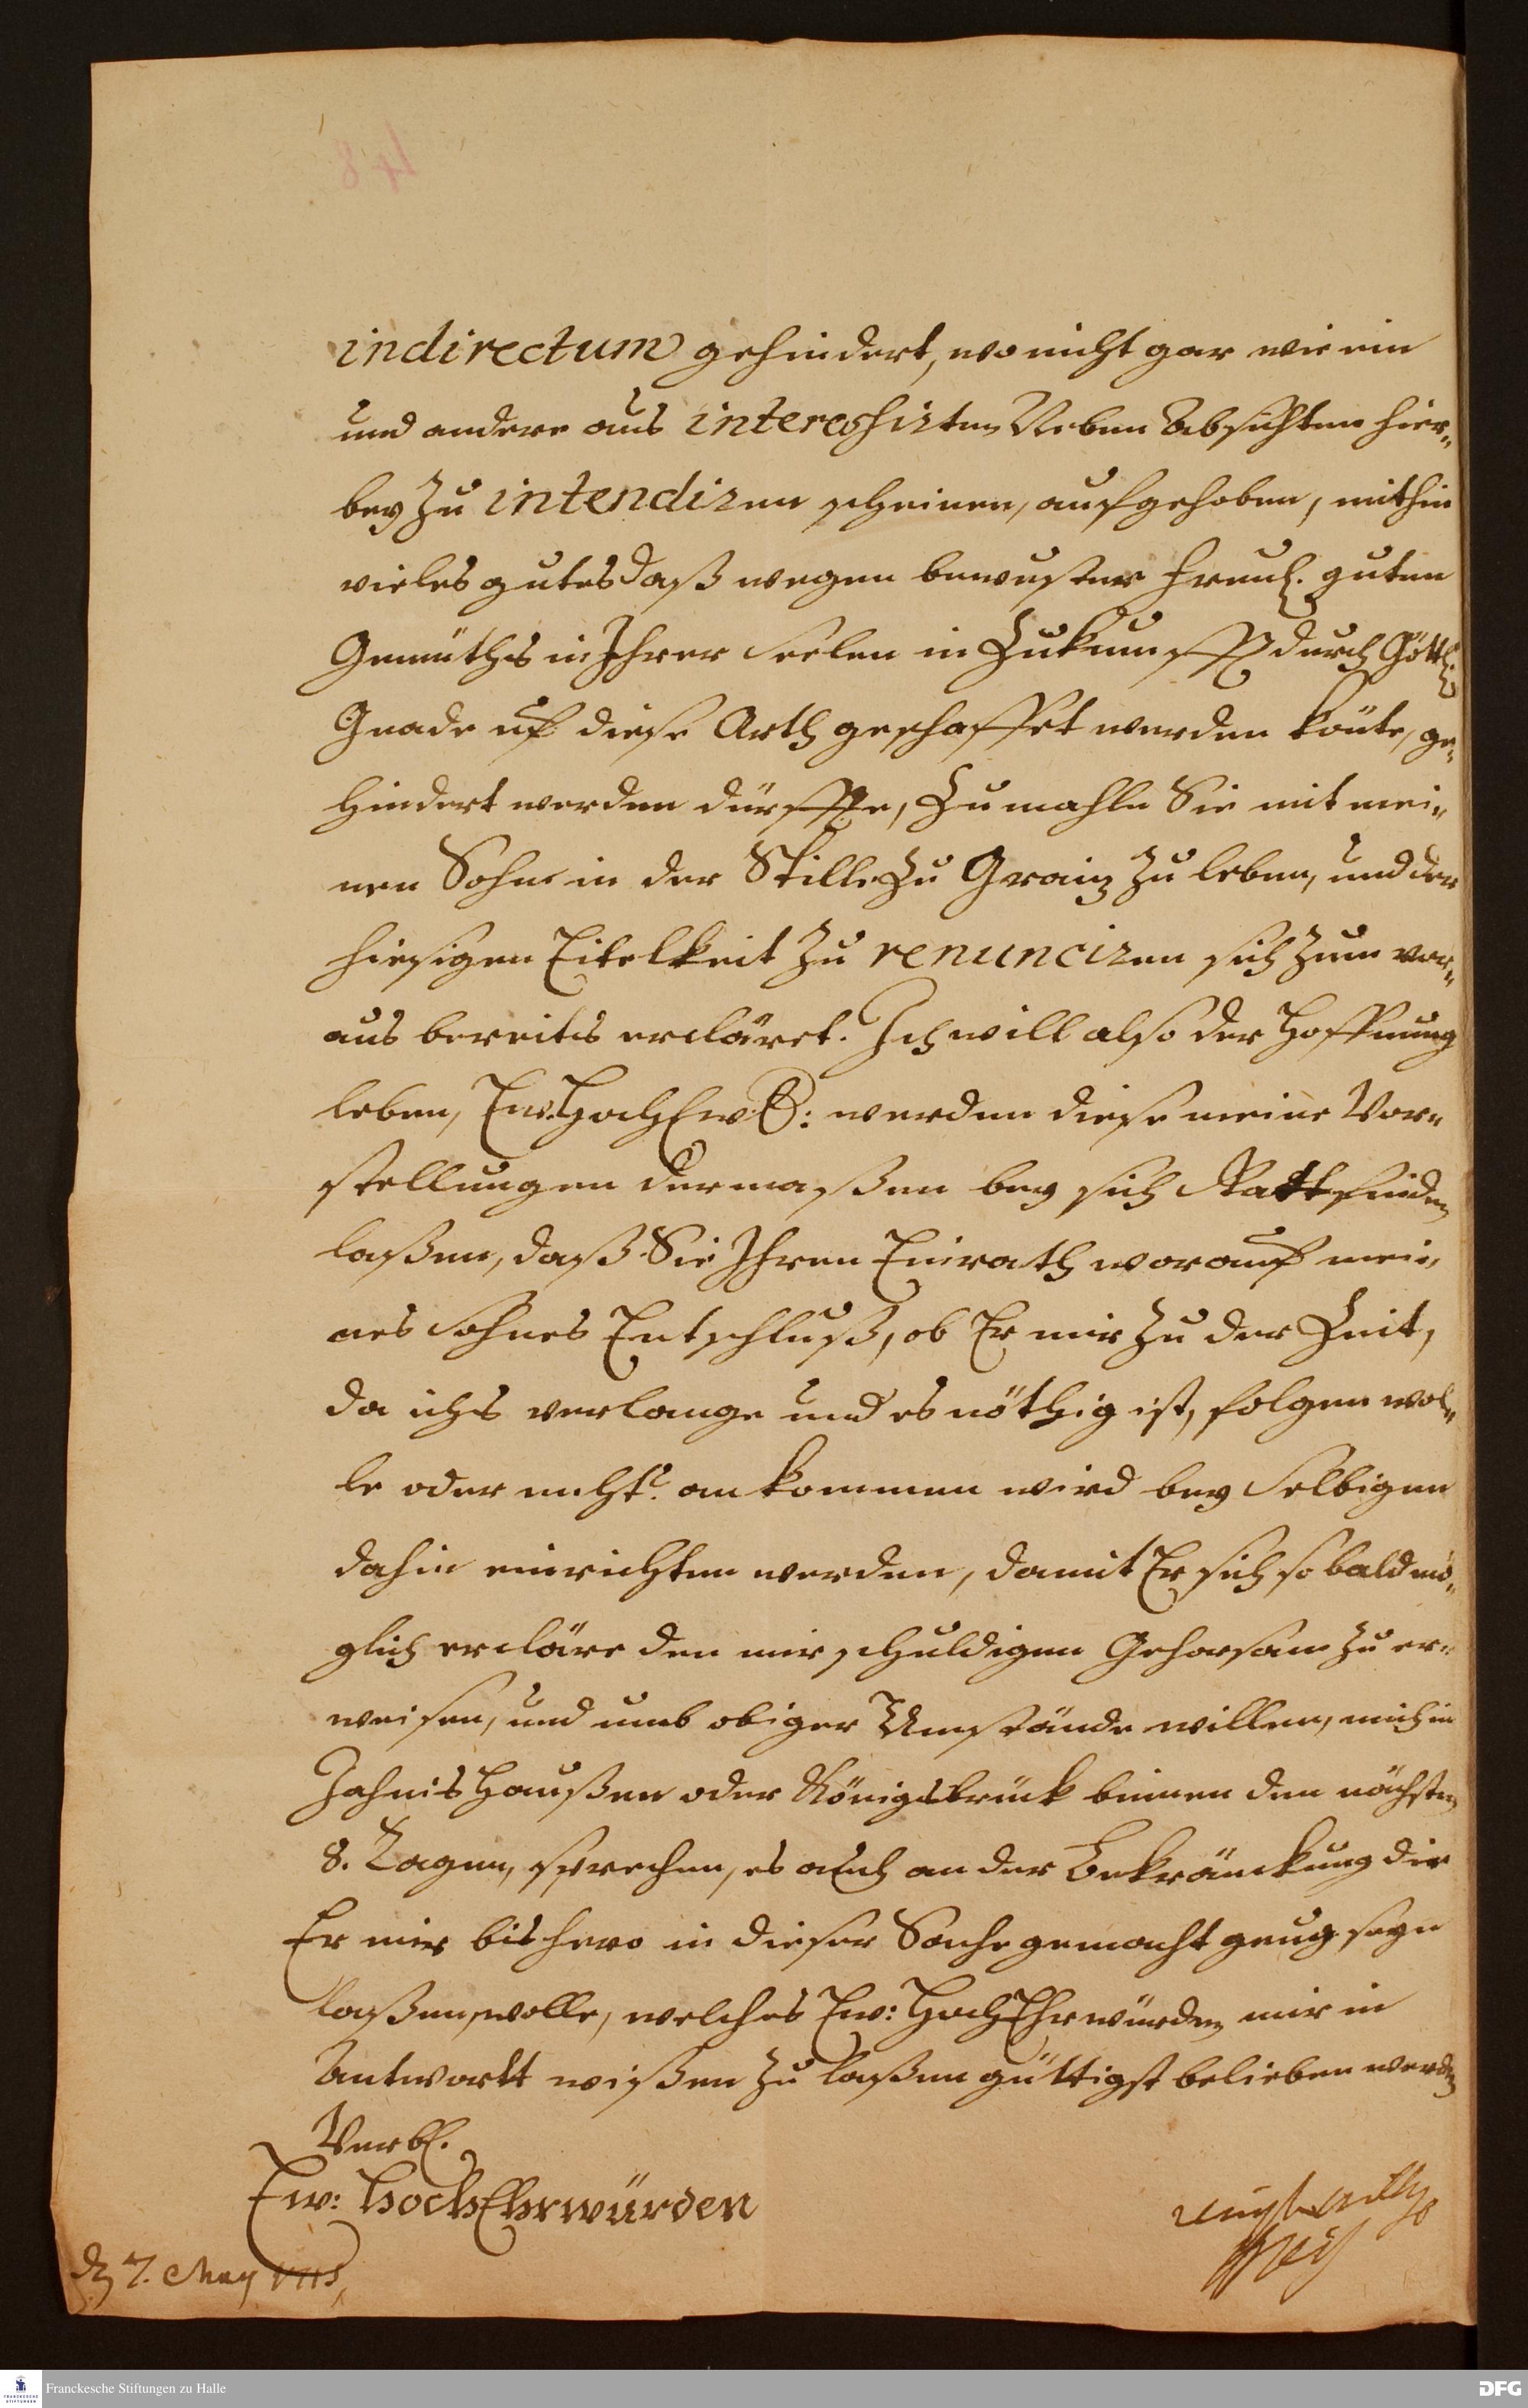 48
indirectum gehindert, wo nicht gar wie ein
und andere aus interessirten Neben Absichten hier-
bey zu intendiren scheinen, aufgehoben, mithin
vieles gutes daß wegen bewuster Freul. guten
Gemüths in Ihrer Seelen in Zukunfft durch Göttl.
Gnade uf diese Arth geschaffet werden könte, ge-
hindert werden dürffte, Zumahle Sie mit mei-
nen Sohne in der Stille zu Graiz zu leben, und der
hiesigen Eitelkeit zu renunciren sich zum vor-
aus bereits ercläret. Ich will also der Hoffnung
leben, Ew. HochEw: werden diese meine Vor-
stellungen dermaßen bey sich Statt finden
laßen, daß Sie Ihren Einrath worauf mei-
nes Sohnes Entschluß, ob Er mir zu der Zeit,
da ichs verlange und es nöthig ist, folgen wol-
le oder nicht? ankommen wird bey Selbigen
dahin einrichten werden, damit Er sich so bald mö-
glich erkläre den mir schuldigen Gehorsam zu er-
weisen, und umb obiger Umstände willen, mich in
Jahnishaußen oder Königsbrück binnen den nächsten
8. Tagen, sprechen, es auch an der Bekränckung die
Er mir bishero in dieser Sache gemacht genug seyn
laßen wolle, welches Ew: HochEhrwürden mir in
Antwortt wißen zu laßen güttigst belieben werden
Verbl.
Ew: HochEhrwürden
d. 7. May 1715,